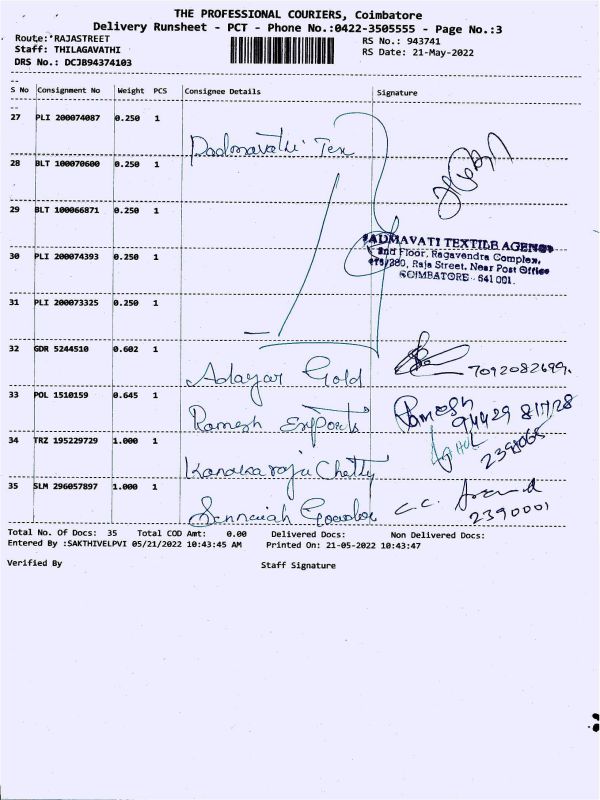 THE PROFESSIONAL COURIERS, Coimbatore
Delivery Runsheet - PCT - Phone No.:0422-3505555 - Page No.:3
Route: RAJASTREET
RS No.: 943741
Staff: THILAGAVATHI
RS Date: 21-May-2022
DRS No.: DCJB94374103
S No Consignment No Weight PCS Consignee Details Signature
27 PLI 200074087 0.250 1
Padmavathi Tex
28 BLT 100070600 0.250 1
29 BLT 100066871 0.250 1
PADMAVATI TEXTILE AGENCY
2nd Floor, Ragavendra Complex,
Raja Street, Near Post Office
COIMBATORE - 641 001.
30 PLI 200074393 0.250 1
31 PLI 200073325 0.250 1
32 GDR 5244510 0.602 1
Adayar Gold 7092082699.
33 POL 1510159 0.645 1
Ramesh Exports Ramesh
94429 81728
34 TRZ 195229729 1.000 1
2398065
Kanakaraju Chetty
35 SLM 296057897 1.000 1
Sennaiah Gowder C.C. Aravind
2390001
Total No. Of Docs: 35 Total COD Amt: 0.00 Delivered Docs: Non Delivered Docs:
Entered By :SAKTHIVELPVI 05/21/2022 10:43:45 AM Printed On: 21-05-2022 10:43:47
Verified By Staff Signature